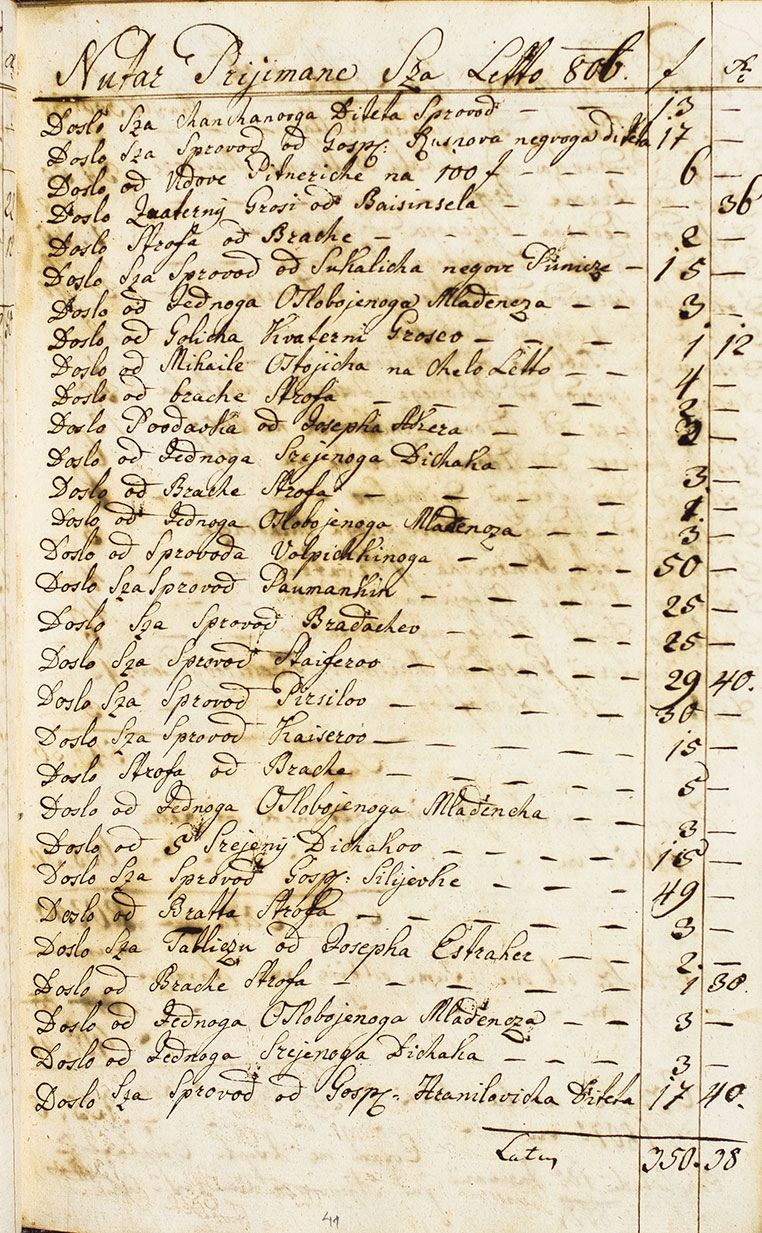 Nutar Prijimane Sza Letto 806. f Xr
Doslo Sza Chanchanovga Diteta Sprovod — — — 13 —
Doslo Sza Sprovod od Gosp: Rusnova negvoga diteta 17 —
Doslo od Vdove Pitneriche na 100 f — — — 6 —
Doslo Quaternij Grosi od Baisinsela — — — — 36
Doslo Strofa od Brache — — — — — 2 —
Doslo Sza Sprovod od Sukalicha negove Punicze — 15 —
Doslo od Jednoga Oslobojenoga Mladencza — — 3 —
Doslo od Golicha Kvaterni Grosco — — — 1 12
Doslo od Mihaile Ostojicha na Chelo Letto — — 4 —
Doslo od brache Strofa — — — — 2 —
Doslo Poodavka od Josepha — — — —
Doslo od Jednoga Szejenoga Dichaka — — — 3 —
Doslo od Brache Strofa — — — — —
Doslo od Jednoga Oslobojenoga Mladencza — — 3 —
Doslo od Sprovoda Volpichkinoga — — — — 50 —
Doslo Sza Sprovod Paumankin — — — — 25 —
Doslo Sza Sprovod Bradachev — — — — 25 —
Doslo Sza Sprovod Staiferov — — — — — 29 40.
Doslo Sza Sprovod Pirsilov — — — — — 30 —
Doslo Sza Sprovod Kaiserov — — — — — 15 —
Doslo Strofa od Brache — — — — — 5 —
Doslo od Jednoga Oslobojenoga Mladencha — — 3 —
Doslo od 5 Szejenij Dichakov — — — — 15 —
Doslo Sza Sprovod Gosp: Silijevke — — — 49 —
Doslo od Bratta Strofa — — — — — 3 —
Doslo Sza Tabliczu od Josepha Estraher — — 2. —
Doslo od Brache Strofa — — — — — 1 30.
Doslo od Jednoga Oslobojenoga Mladencza — — 3 —
Doslo od Jednoga Szejenoga Dichaka — — — 3 —
Doslo Sza Sprovod od Gosp: Hranilovicha Diteta 17 40.
Latus 350. 38
41